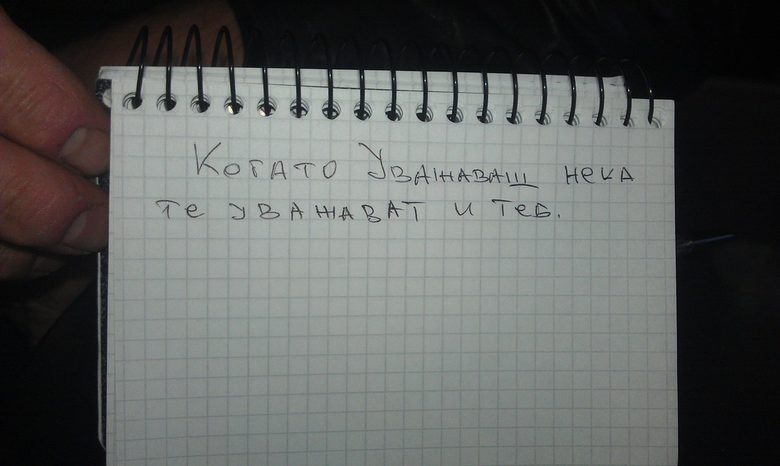 Когато Уважаваш нека
те уважават и теб.